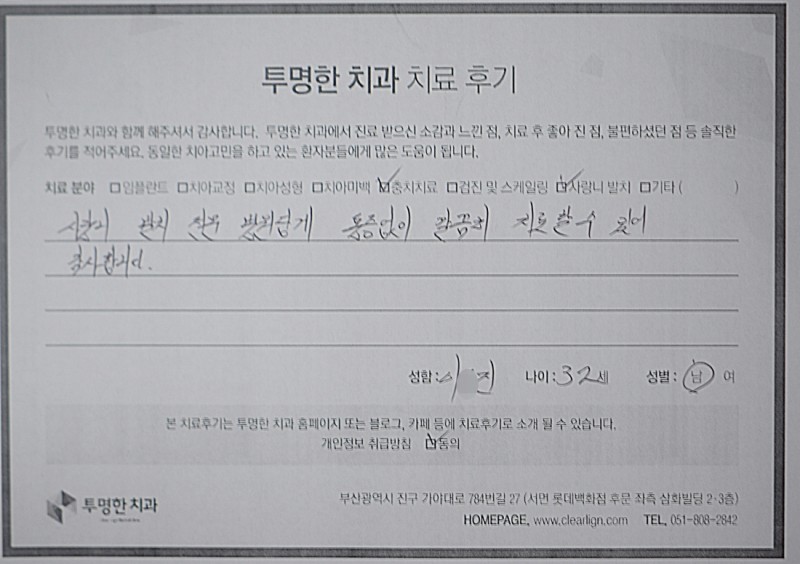 투명한 치과 치료 후기
투명한 치과와 함께 해주셔서 감사합니다. 투명한 치과에서 진료 받으신 소감과 느낀 점, 치료 후 좋아 진 점, 불편하셨던 점 등 솔직한
후기를 적어주세요. 동일한 치아고민을 하고 있는 환자분들에게 많은 도움이 됩니다.
치료 분야 □임플란트 □치아교정 □치아성형 □치아미백 ☑충치치료 □검진 및 스케일링 ☑사랑니 발치 □기타 ( )
발치 통증없이 깔끔히 치료할 수 있어
감사합니다.
성함 : 나이 : 32세 성별 : 남 여
본 치료후기는 투명한 치과 홈페이지 또는 블로그, 카페 등에 치료후기로 소개 될 수 있습니다.
개인정보 취급방침 ☑동의
투명한 치과
부산광역시 진구 가야대로 784번길 27 (서면 롯데백화점 후문 좌측 삼화빌딩 2·3층)
HOMEPAGE. www.clearlign.com TEL. 051-808-2842